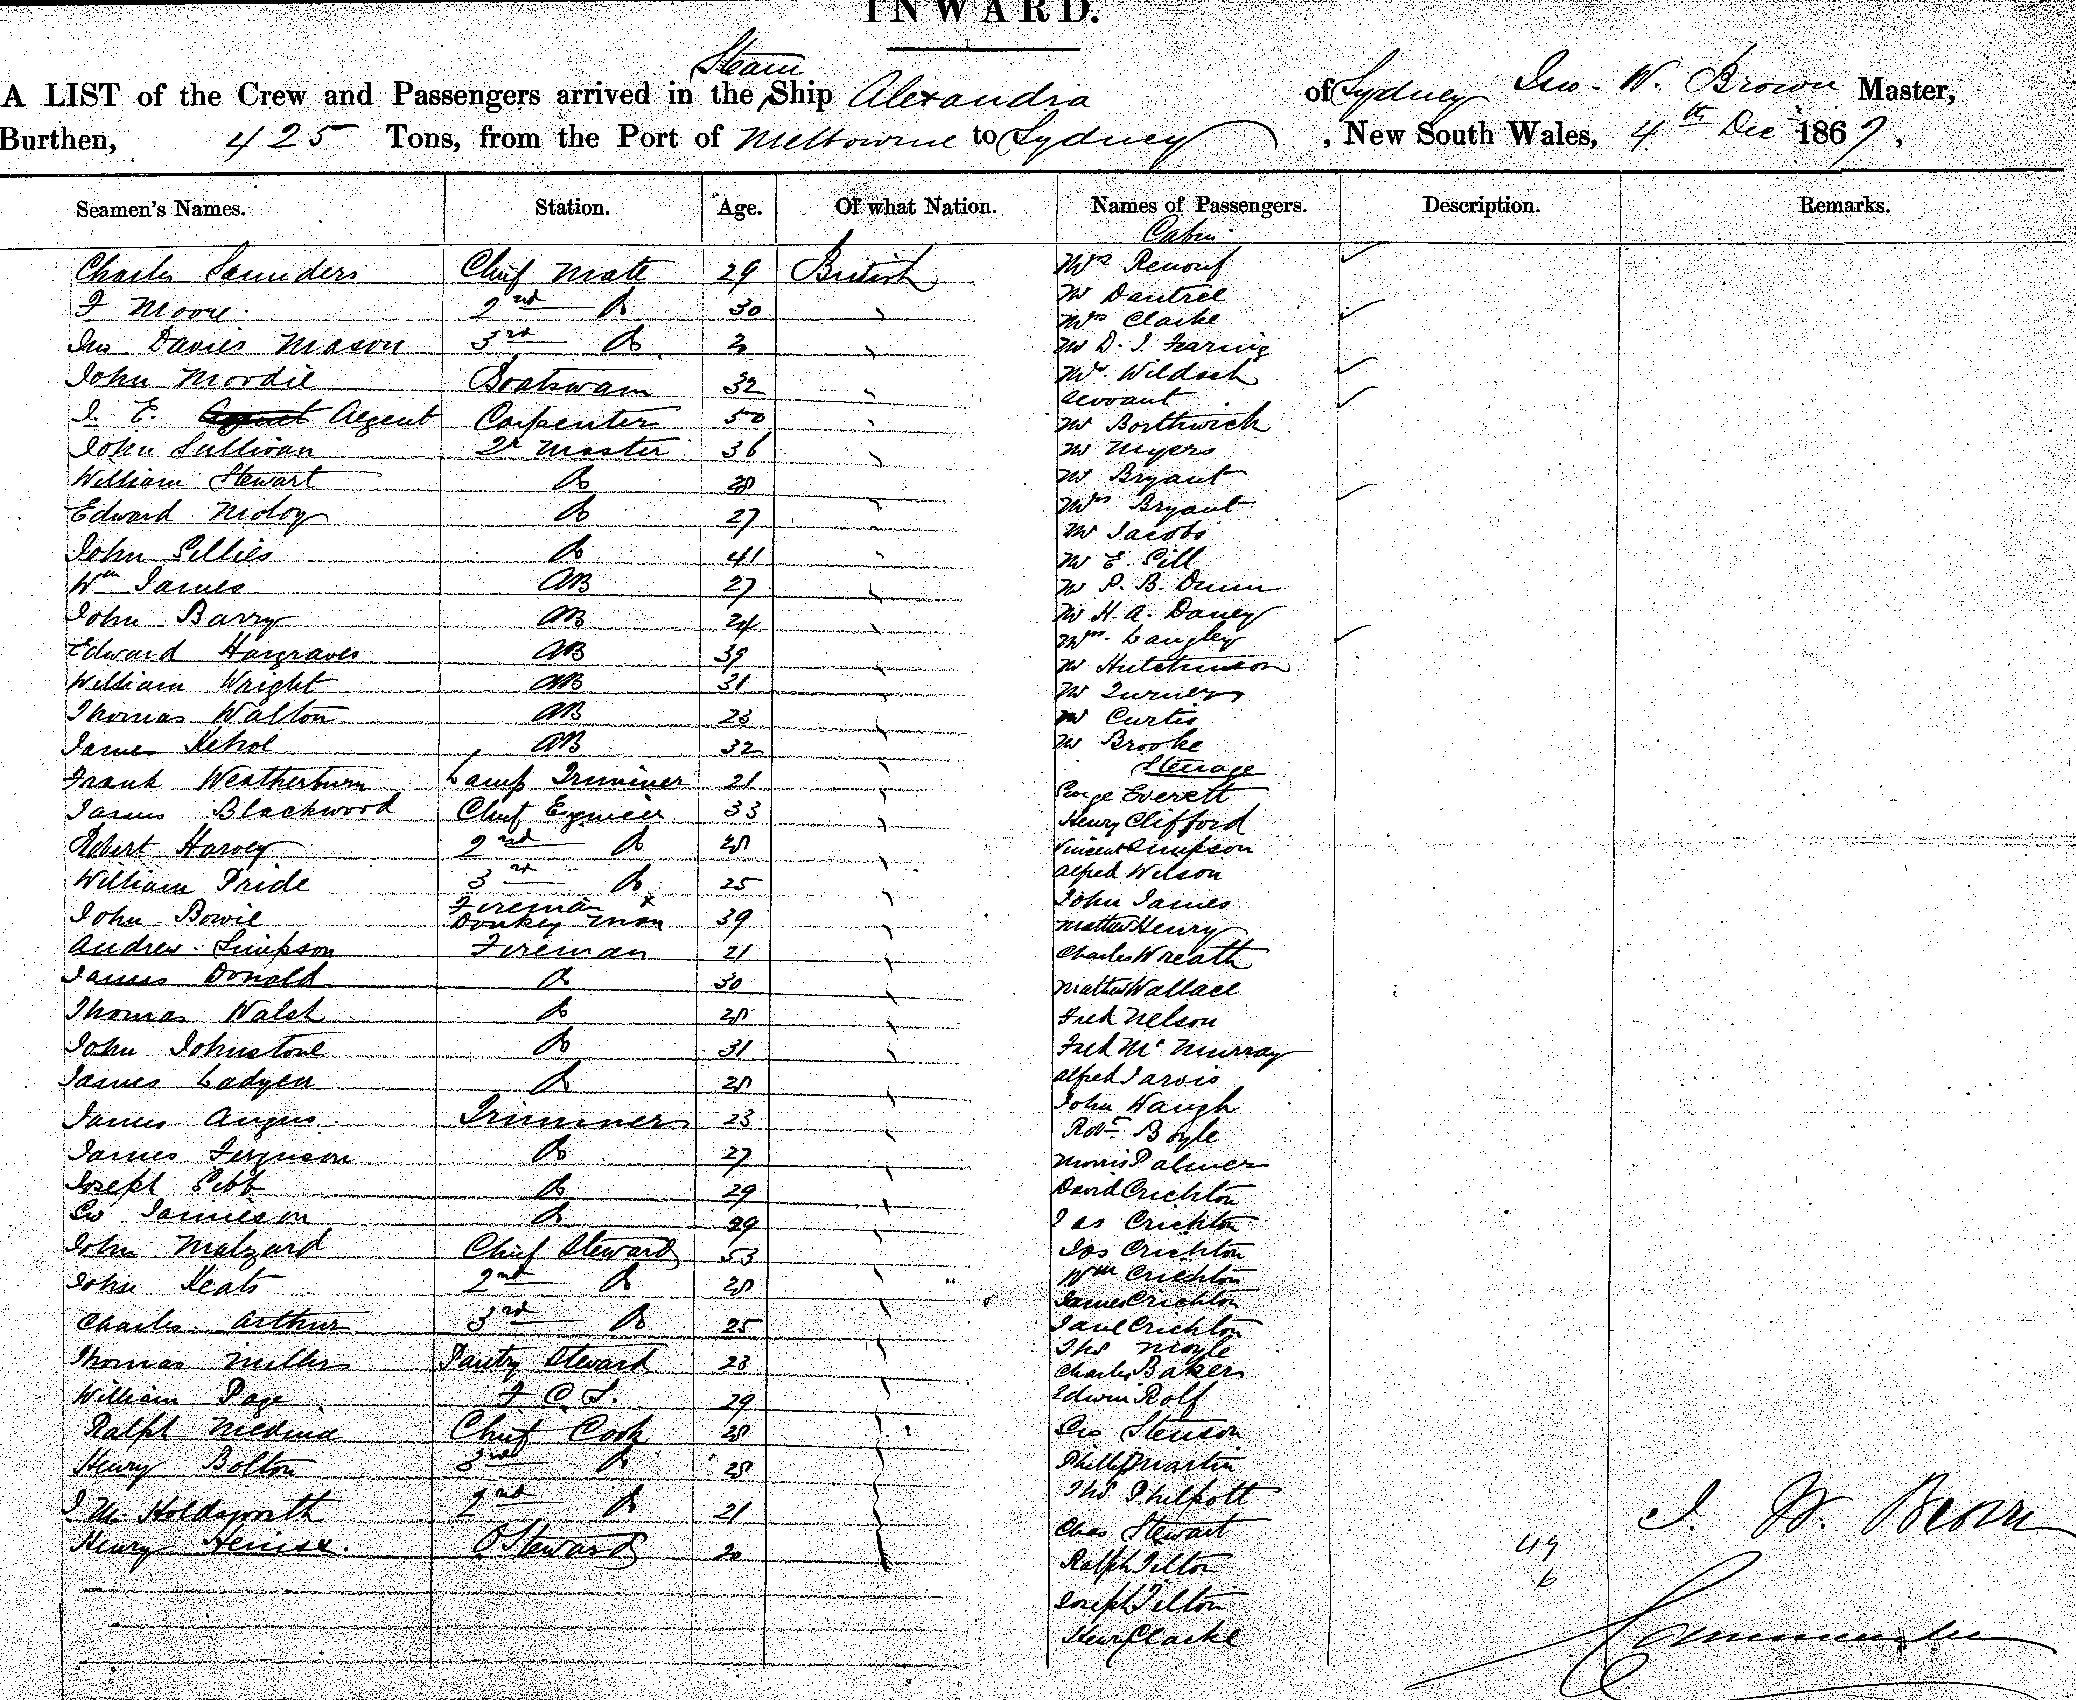 INWARD.
Steam
A LIST of the Crew and Passengers arrived in the Ship Alexandra of Sydney Jno. W. Brown Master,
Burthen, 425 Tons, from the Port of Melbourne to Sydney, New South Wales, 4th Dec 1867,
Seamen's Names. Station. Age. Of what Nation. Names of Passengers. Description. Remarks.
Cabin
Charles Saunders Chief Mate 29 British Mrs Renouf
F Moore 2nd Do 30 " Mr Dautrel
Jno Davies Mason 3rd Do " Mrs Clarke
Mr D. J.
John Moodie Boatswain 32 " Wildash
Servant
J. E. Argent Carpenter 50 " Mr Borthwick
John Sullivan 2r Master 36 " Mr Myers
William Stewart Do 28 " Mr Bryant
Edward Moloy Do 27 " Mrs Bryant
Mr Jacobs
John Gillies Do 41 " Mr E. Gill
Wm James AB 27 " Mr P. B. Dunn
John Barry AB 24 " Mr H. A. Daney
Edward Hargraves AB 39 " Mrs Langley
Mr Hutchinson
William Wright AB 31 " Mr Turner
Thomas Walton AB 23 " Mr Curtis
James AB 32 " Mr Brooke
Steerage
Frank Weatherburn Lamp Trimmer 21 " George Everett
James Blackwood Chief Engineer 33 " Henry Clifford
Robert Harvey 2nd Do 28 " Vincent Simpson
William Pride 3rd Do 25 " Alfred Wilson
John James
John Bowie Fireman & Donkey Man 39 " Matthew Henry
Andrew Simpson Fireman 21 " Charles Wreath
James Donald Do 30 " Mathew Wallace
Thomas Walsh Do 28 " Fred Nelson
John Johnstone Do 31 " Fred McMurray
James Ladyen Do 28 " Alfred Jarvis
John Waugh
James Angus Trimmer 23 " Robt Boyle
James Ferguson Do 27 " Morris Palmer
Joseph Gibb Do 29 " David Crichton
Geo Jamieson Do 29 " Jas Crichton
John Malzard Chief Steward 53 " Jos Crichton
John Keats 2nd Do 28 " Wm Crichton
James Crichton
Charles Arthur 3rd Do 25 " Jane Crichton
Thos Moyle
Thomas Miller Pantry Steward 23 " Charles Baker
William Page F. C. S. 29 " Edwin Rolf
Ralph Medina Chief Cook 28 " Geo Stenson
Henry Bolton 3rd Do 28 " Phillip Martin
J M Holdsworth 2nd Do 21 " Thos Philpott
Chas Stewart
Henry Steward 20 " Ralph Tilton
Joseph Tilton
Henry Clarke
J. W. Brown
49
6
Commander